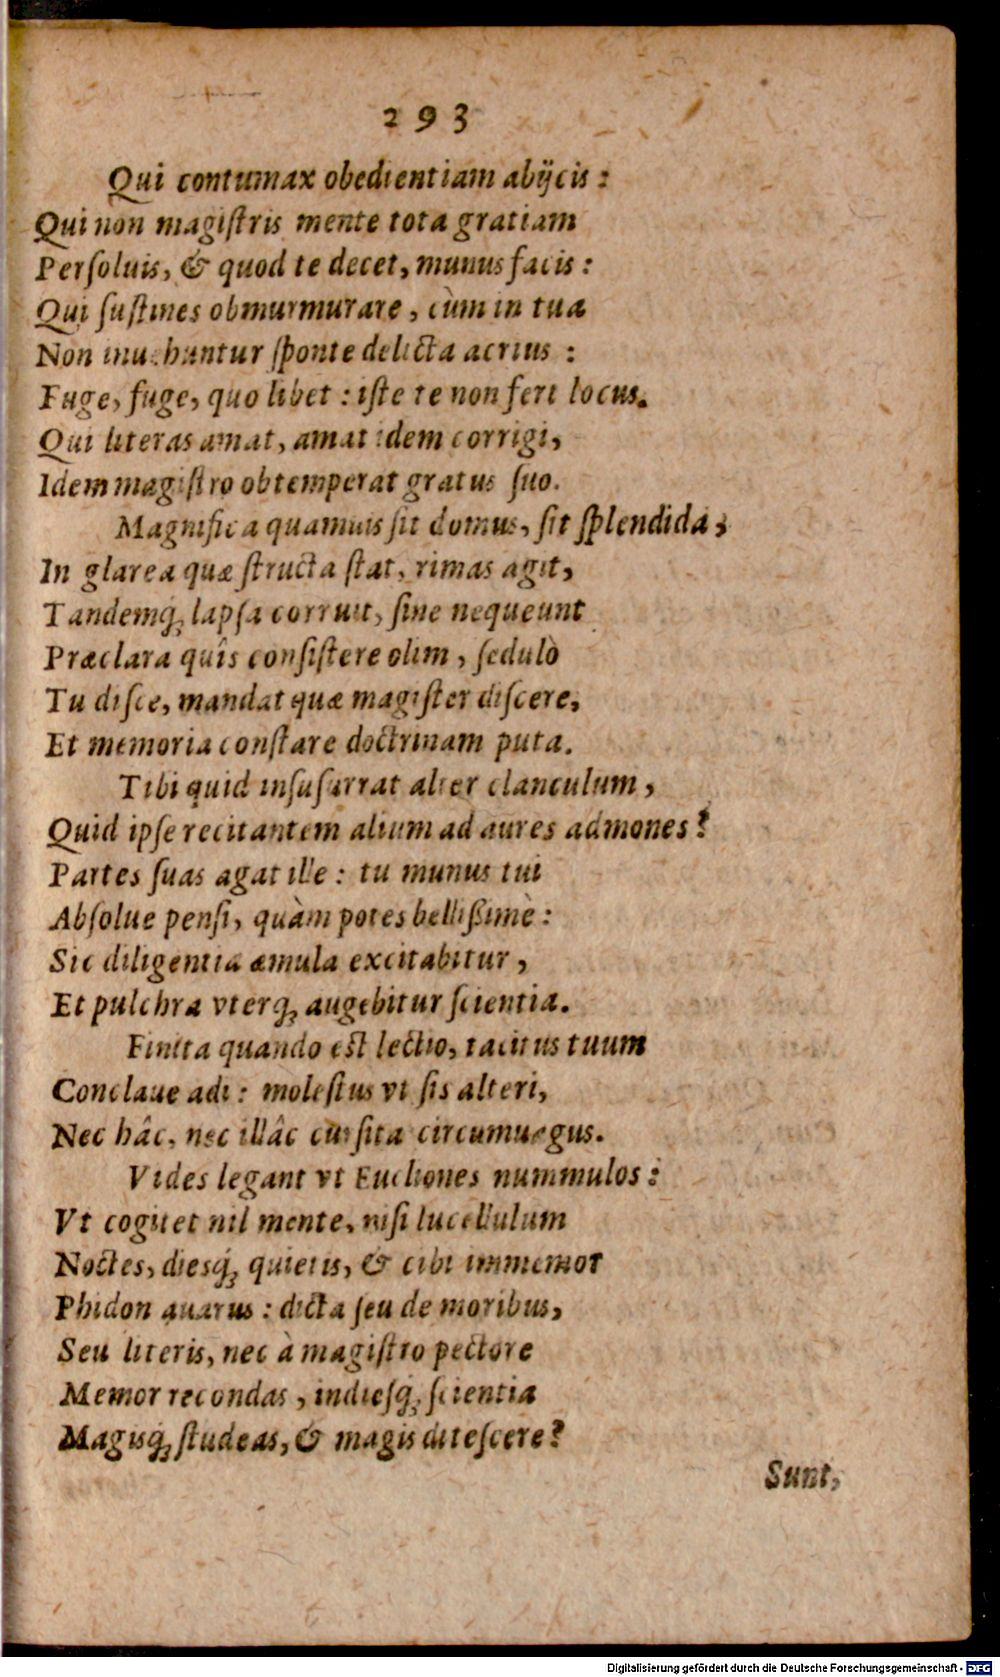 293
Qui contumax obedientiam abijcis:
Qui non magiſtris mente tota gratiam
Perſoluis, & quod te decet, munus facis:
Qui ſuſtines obmurmurare, cùm in tua
Non inuehuntur ſponte delicta acrius:
Fuge, fuge, quo libet: iſte te non fert locus.
Qui literas amat, amat idem corrigi,
Idem magiſtro obtemperat gratus ſuo.
Magnifica quamuis ſit domus, ſit ſplendida;
In glarea quæ ſtructa ſtat, rimas agit,
Tandemq́; lapſa corruit, ſine nequeunt
Præclara quîs conſiſtere olim, ſedulò
Tu diſce, mandat quæ magiſter diſcere,
Et memoria conſtare doctrinam puta.
Tibi quid inſuſurrat alter clanculum,
Quid ipſe recitantem alium ad aures admones?
Partes ſuas agat ille: tu munus tui
Abſolue penſi, quàm potes belliſsimè:
Sic diligentia æmula excitabitur,
Et pulchra vterq; augebitur ſcientia.
Finita quando eſt lectio, tacitus tuum
Conclaue adi: moleſtus vt ſis alteri,
Nec hâc, nec illâc curſita circumuagus.
Vides legant vt Eucliones nummulos:
Vt cogitet nil mente, niſi lucellulum
Noctes, diesq́; quietis, & cibi immemor
Phidon auarus: dicta ſeu de moribus,
Seu literis, nec à magiſtro pectore
Memor recondas, indieſq́; ſcientia
Magisq́; ſtudeas, & magis diteſcere?
Sunt,
Digitalisierung gefördert durch die Deutsche Forschungsgemeinschaft - DFG